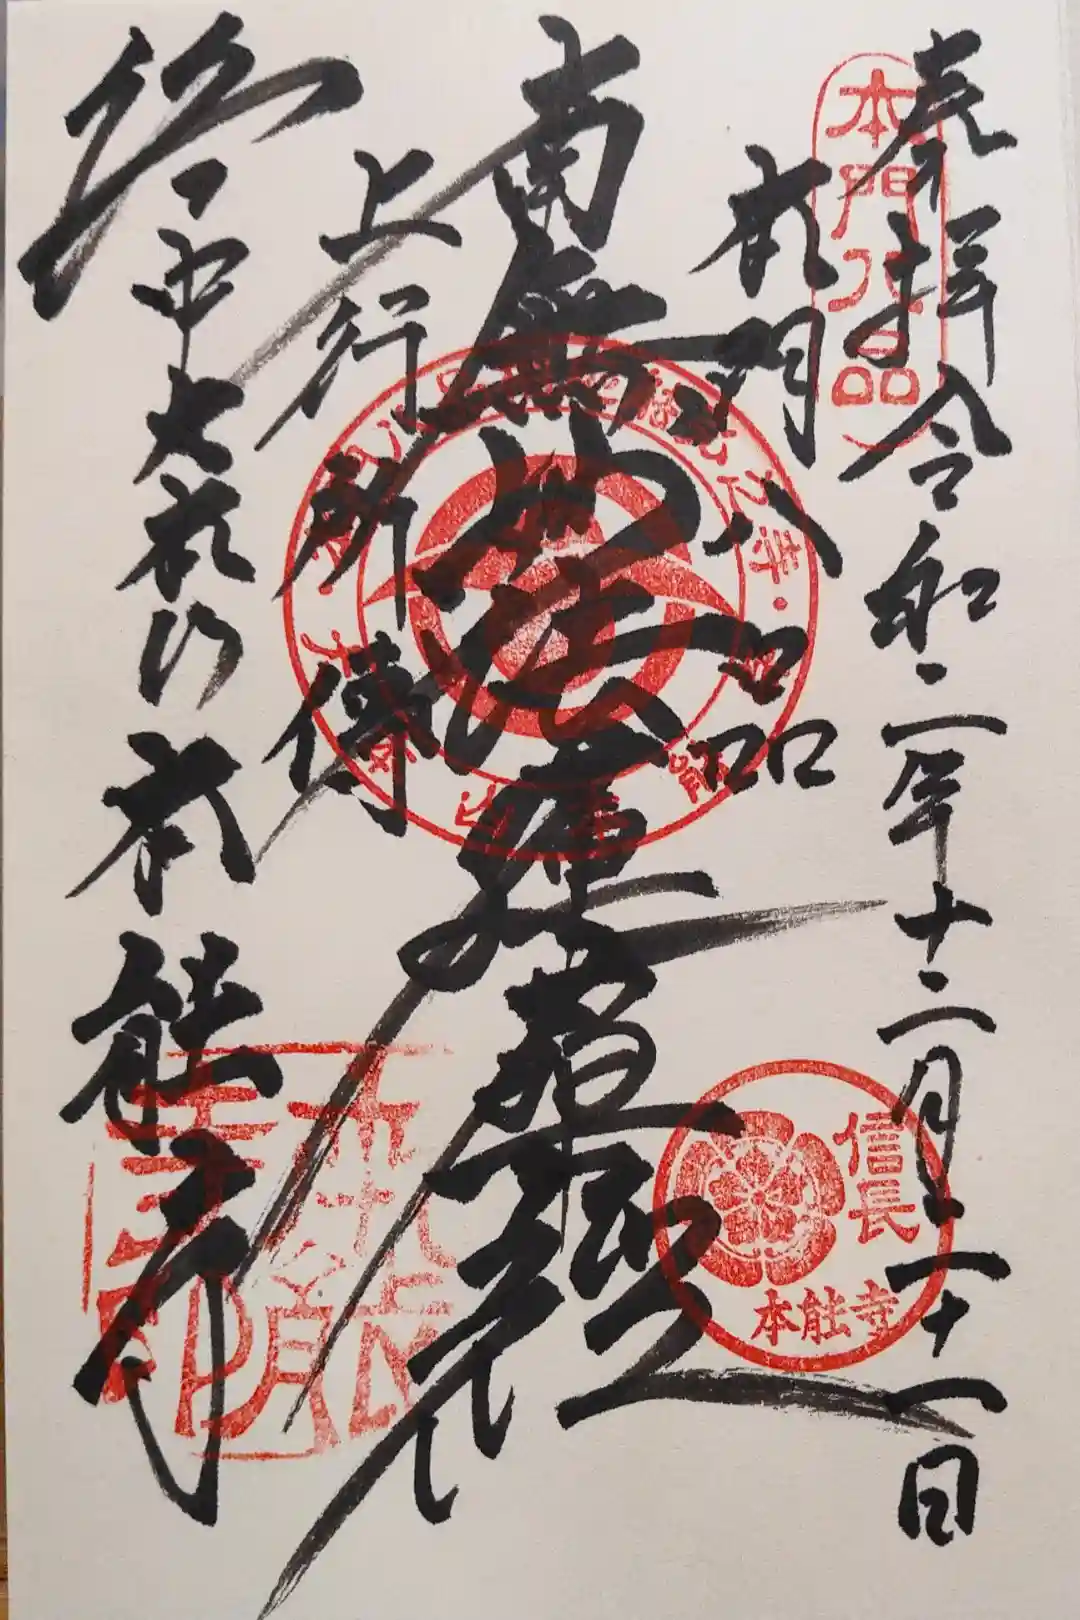 奉拝 令和二年十二月二十一日
本門八品
本門八品
南無妙法蓮華経
上行所傳
洛中大本山 本能寺
信長
本能寺